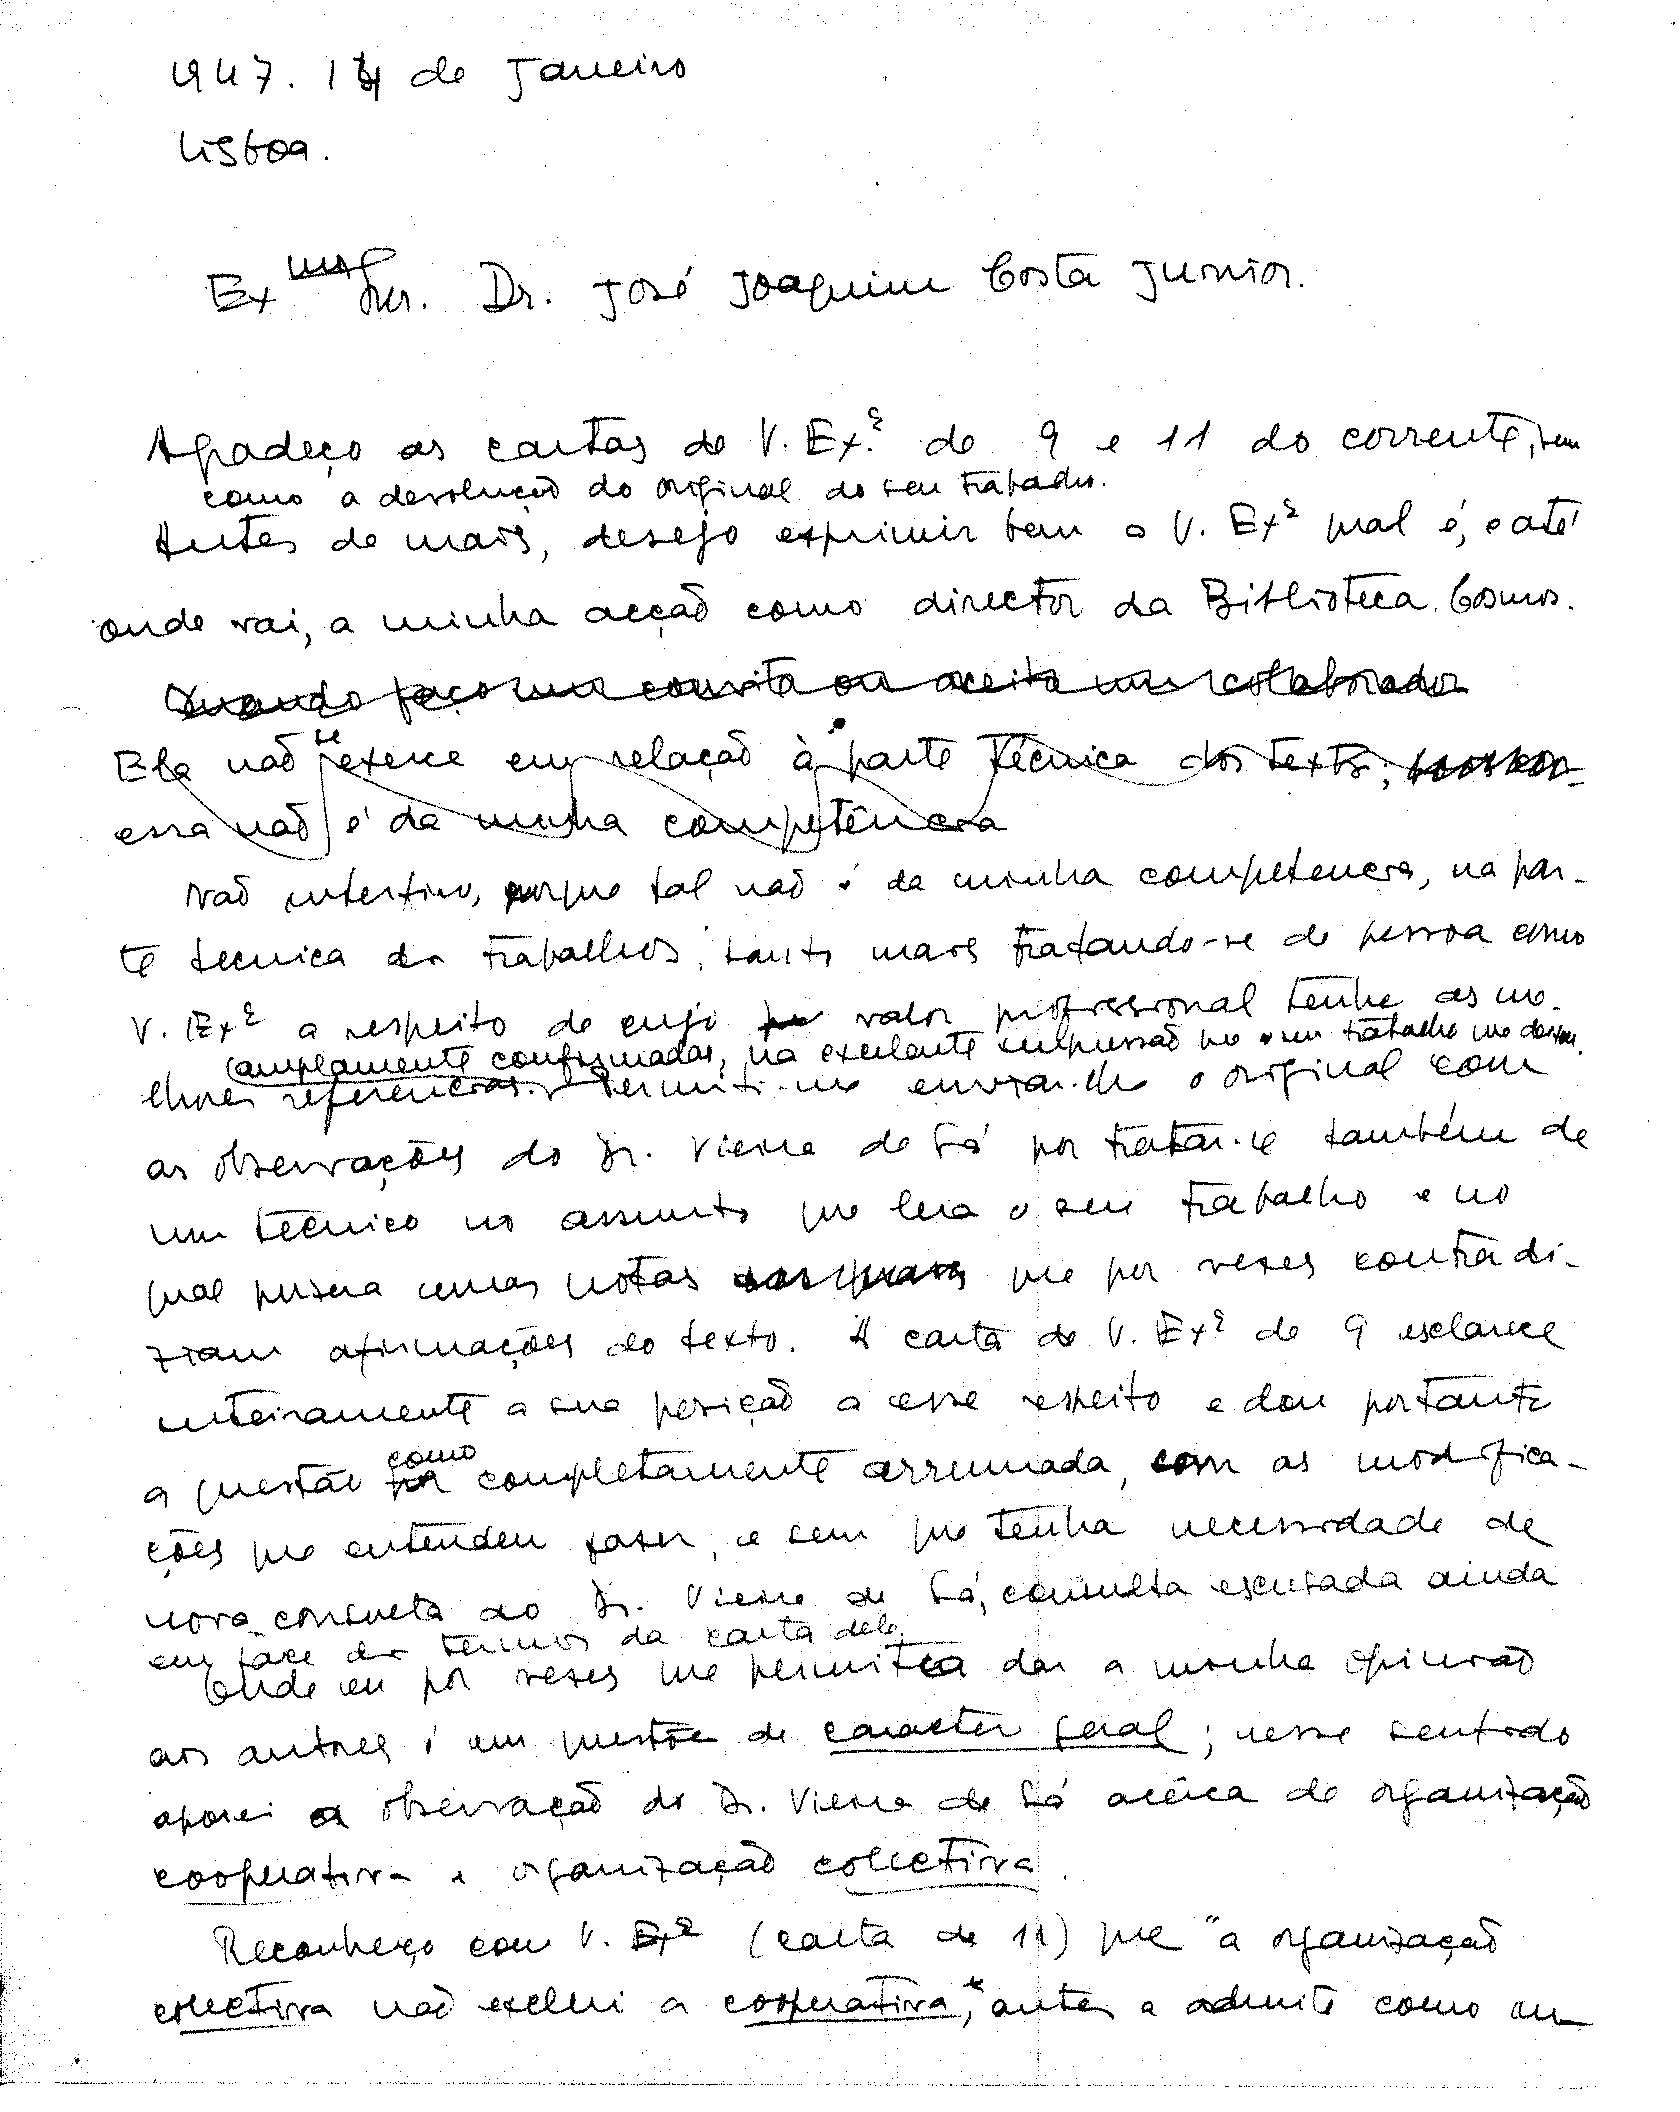 947. 14 de Janeiro
Lisboa.
Ex.mo Snr. Dr. José Joaquim Costa Junior.
Agradeço as cartas de V. Ex.ª de 9 e 11 do corrente, bem
como a devolução do original do seu trabalho.
Antes de mais, desejo exprimir bem a V. Exª qual é, e até
onde vai, a minha acção como director da Biblioteca Cosmos.
Quando faço um convite ou aceito um colaborador
Ela não se exerce em relação à parte técnica dos textos,
essa não é da minha competência
Não intervino, porque tal não é da minha competencia, na par-
te tecnica dos trabalhos, tanto mais tratando-se de pessoa como
V. Exª a respeito de cujo valor profissional tenho as me-
amplamente confirmadas, na excelente impressão que o seu trabalho me deixou.
lhores referencias. Permiti-me enviar-lhe o original com
as observações do Dr. Vieira de Sá por tratar-se também de
um técnico no assunto que lera o seu trabalho e no
qual pusera umas notas que por vezes contradi-
ziam afirmações do texto. A carta de V. Exª de 9 esclarece
inteiramente a sua posição a esse respeito e dou portanto
a questão como completamente arrumada, com as modifica-
ções que entendeu fazer, e sem que tenha necessidade de
nova consulta ao Dr. Vieira de Sá, consulta escusada ainda
em face dos termos da carta dele.
Onde eu por vezes me permito dar a minha opinião
aos autores é em questões de caracter geral; nesse sentido
apoiei a observação do Dr. Vieira de Sá acêrca de organização
cooperativa e organização colectiva.
Reconheço com V. Exª (carta de 11) que "a organização
colectiva não exclui a cooperativa," antes a admite como um